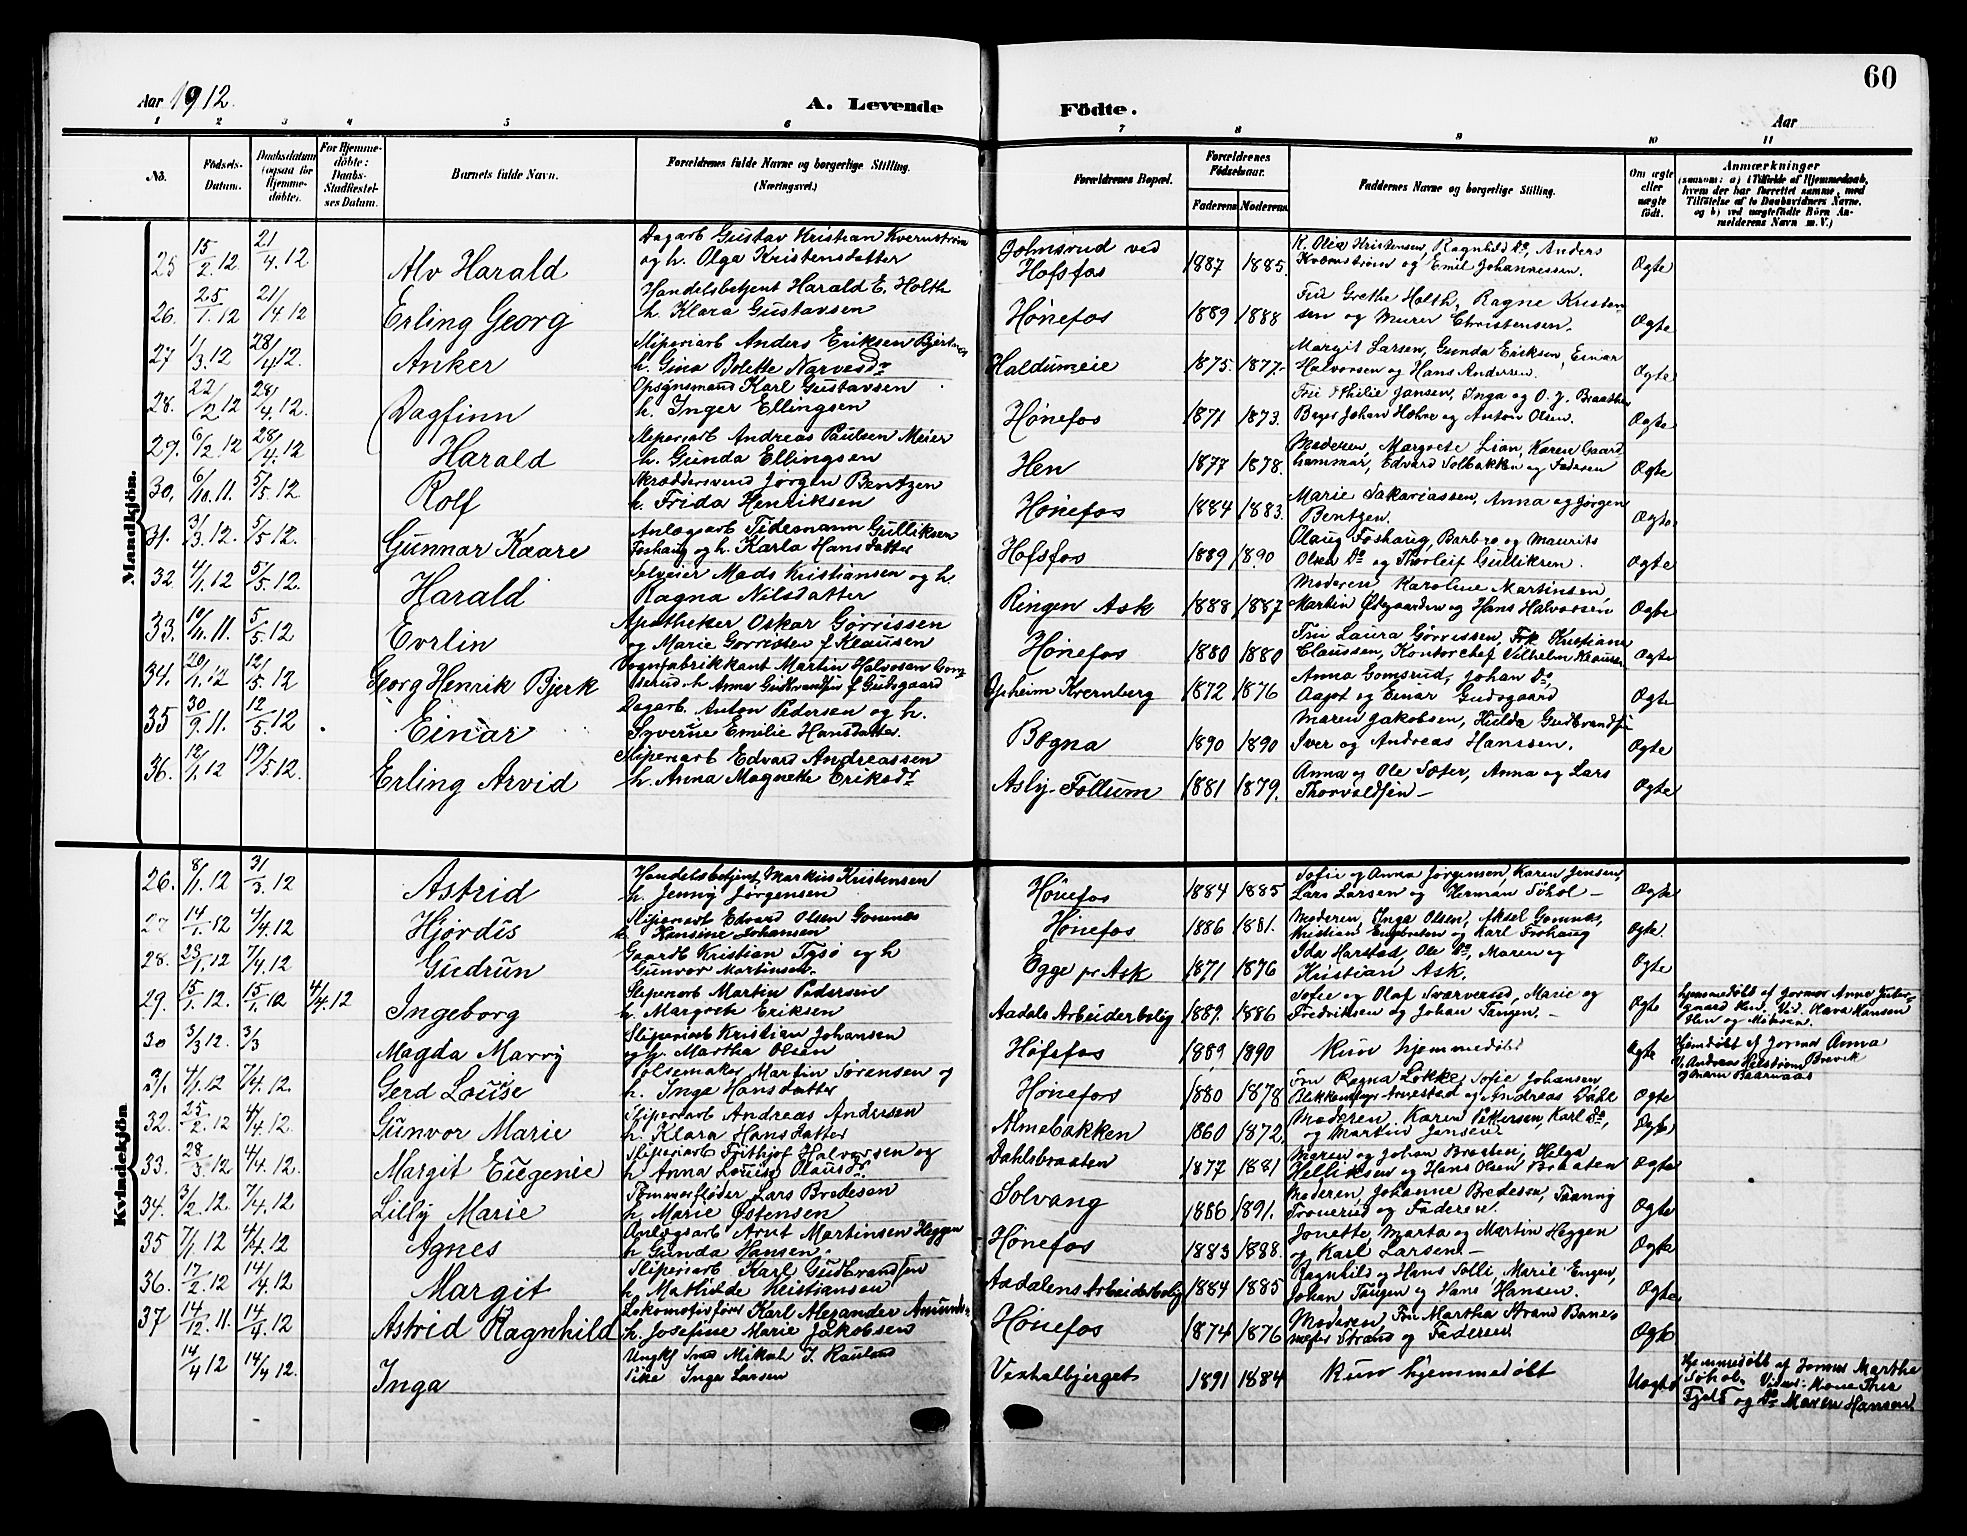 Aar 1912.
A. Levende Födte.
60
Aar
1 2 3 4 5 6 7 8 9 10 11
No.
Födsels-Datum.
Daabsdatum (ogsaa for Hjemme-döbte).
For Hjemme-döbte: Daabs-Stadfæstel-ses Datum.
Barnets fulde Navn.
Forældrenes fulde Navne og borgerlige Stilling. (Næringsvei.)
Forældrenes Bopæl.
Forældrenes Födselsaar.
Faderens Moderens
Faddernes Navne og borgerlige Stilling.
Om ægte eller uægte födt.
Anmærkninger
(saasom: a) i Tilfælde af Hjemmedaab, hvem der har forrettet samme, med Tilföielse af to Daabsvidners Navne. og b) ved uægtefödte Börn Anmelderens Navn m. V.)
Mandkjön.
25 15/2 12 21/4 12 Alv Harald Dagarb Gustav Kristian Kvernstrøm og h. Olga Kristensdatter Hofsfos 1887 1885. K. Olea Kristensen, Ragnhild Do, Anders Kvernstrøm og Emil Johannessen. Ægte
26. 25/1 12 21/4 12 Erling Georg Handelsbetjent Harald E. Holth h. Klara Gustavsen Hønefos 1889 1888 Fru Grethe Holth, Ragne Kristensen og Murer Christensen. Ægte
27 1/3 12 28/4 12. Anker Sliperiarb Anders Eriksen h. Gina Bolette 1875. 1877. Margit Larsen, Gunda Eriksen, Einar Halvorsen og Hans Andersen. Ægte
28. 22/2 12 28/4 12. Dagfinn Opsynsmand Karl Gustavsen h. Inger Ellingsen Hønefos 1871 1873. Jansen, Inga og O. J. Braathen Johan og Anton Olsen. Ægte
29. 6/2 12 28/4 12 Harald Sliperiarb Andreas Paulsen Meier h. Gunda Ellingsen Hen 1877 1878. Moderen, Margrete Lian, Karen Edvard Solbakken og Faderen Ægte
30. 6/10 11. 5/5 12 Rolf Skræddersvend Jörgen Bentzen h. Frida Henriksen Hønefos 1884 1883. Marie Sakariassen, Anna og Jörgen Bentzen. Ægte
31. 3/3 12. 5/5 12. Gunnar Kaare Anlægsarb Tidemann Gulliksen Foshaug og h. Karla Hansdatter Hofsfos 1889 1890 Olaug Foshaug, Barbro og Maurits Olsen Do og Thorleif Gulliksen. Ægte
32 4/1 12 5/5 12. Harald Selveier Mads Kristiansen og h. Ragna Nilsdatter Ringen Ask 1888 1887 Moderen Karoline Martinsen, Martin og Hans Halvorsen Ægte
33. 10/11 11. 5/5 12 Evrlin Apotheker Oskar Gørrissen og Marie Gørrissen f Klausen Hønefos 1880 1880 Fru Laura Gørrissen, Frk Kristiane Claussen, Kontorchef Vilhelm Klausen Ægte
34. 20/1 12 12/5 12 Georg Henrik Bjerk Vognfabrikkant Martin Halvorsen Gomsrud h Anna Gudbrandsen f Gudsgaard Opheim 1872 1876 Anna Gomsrud, Johan Do, Aagot og Einar Gudsgaard Ægte
35 30/9 11. 12/5 12 Einar Dagarb. Anton Pedersen og h. Syverine Emilie Hansdatter. Bægna 1890 1890 Maren Jakobsen, Hulda Gudbrandsen Iver og Andreas Hanssen. Ægte
36. 12/1 12 19/5 12. Erling Arvid Sliperiarb Edvard Andreassen h. Anna Magnette Eriksdr Asby Follum 1881 1879. Anna og Ole Sæter, Anna og Lars Thorvaldsen — Ægte
Kvindekjön
26. 8/1 12 31/3 12 Astrid Handelsbetjent Markus Kristensen h. Jenny Jørgensen Hønefos 1884 1885 Sofie og Anna Jørgensen, Karen Jensen, Lars Larsen og Herman Søhol — Ægte
27 14/1 12 4/4 12 Hjørdis Sliperiarb Edvard Olsen Gomnes h. Hansine Johansen Hønefos 1886 1881. Moderen, Inga Olsen, Aksel Gomnes, Kristian Engbreten og Karl Frohaug Ægte.
28. 29/1 12 7/4 12 Gudrun Gaardb Kristian Tysø og h Gunvor Martinsen. Egge pr Ask 1871 1876 Ida Harstad, Ole Do, Maren og Kristian Ask. Ægte
29. 15/1 12. 15/1 12 4/4 12 Ingeborg Sliperiarb Martin Pedersen h. Margrete Eriksen Aadals Arbeiderbolig 1889. 1886 Sofie og Olaf Sværverud, Marie og Fredriksen og Johan Tangen. — Ægte hjemmedøbt af Jormor Anna Hen. Vid. Klara Hansen Hen og Moderen.
30 3/3 12. 3/3 Magda Marry Sliperiarb Kristian Johansen og h. Martha Olsen Hofsfos 1889 1890 Kun hjemmedøbt Ægte Hjemdøbt af Jormor Anna
31. 4/1 12 7/4 12. Gerd Louise Pølsemaker Martin Sørensen og h. Inga Hansdatter Hønefos 1880 1878 Fru Ragna Løkke, Sofie Johansen, Arnestad og Andreas Dahl Ægte
32. 25/2 12 4/4 12. Gunvor Marie Sliperiarb Andreas Andresen h. Klara Hansdatter Almebakken 1860 1872. Moderen, Karen Pettersen, Karl Do, og Martin Jensen Ægte
33. 28/3 12 4/4 12. Margit Eugenie Sliperiarb Frithjof Halvorsen og h Anna Lovise Olausdr Dahlsbraaten 1877 1881 Maren og Johan Braaten, Helga Helliksen og Hans Olsen Braaten Ægte
34. 3/2 12 7/4 12. Lilly Marie Tømmerfløder Lars Bredesen h. Marie Østensen Solvang 1886 1891. Moderen, Johanne Bredesen, Fanny og Faderen. Ægte
35 7/1 12 4/4 12 Agnes Anlægsarb Arnt Martinsen Heggen h Gunda Hansen. Hønefos 1883 1888. Jonette, Marta og Martin Heggen og Karl Larsen. — Ægte
36. 17/2 12 14/4 12 Margit Sliperiarb Karl Gudbrandsen h Mathilde Kristiansen Aadalens Arbeiderbolig 1884 1885 Ragnhild og Hans Solli, Marie Engen, Johan Tangen og Hans Hansen. Ægte
37 14/12 11. 14/4 12 Astrid Ragnhild Lokomotivfører Karl Alexander h. Josefine Marie Jakobsen Hønefos 1874 1876 Moderen Fru Martha Strand Strand og Faderen Ægte
14/4 12 14/4 12. Inga Ungk. Mikal J. Pike Inga Larsen Vextalbjerget 1891 1884 Kun hjemmedøbt Uægte Hjemmedøbt af Jormor Marthe Søhol. og Do Maren Hansen.